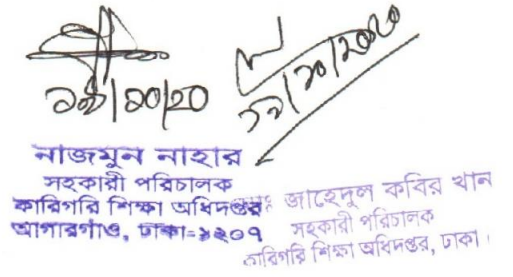 ১৯/১০/২০
১৯/১০/২০২০
নাজমুন নাহার
সহকারী পরিচালক
কারিগরি শিক্ষা অধিদপ্তর
আগারগাঁও, ঢাকা-১২০৭
জাহেদুল কবির খান
সহকারী পরিচালক
কারিগরি শিক্ষা অধিদপ্তর, ঢাকা।